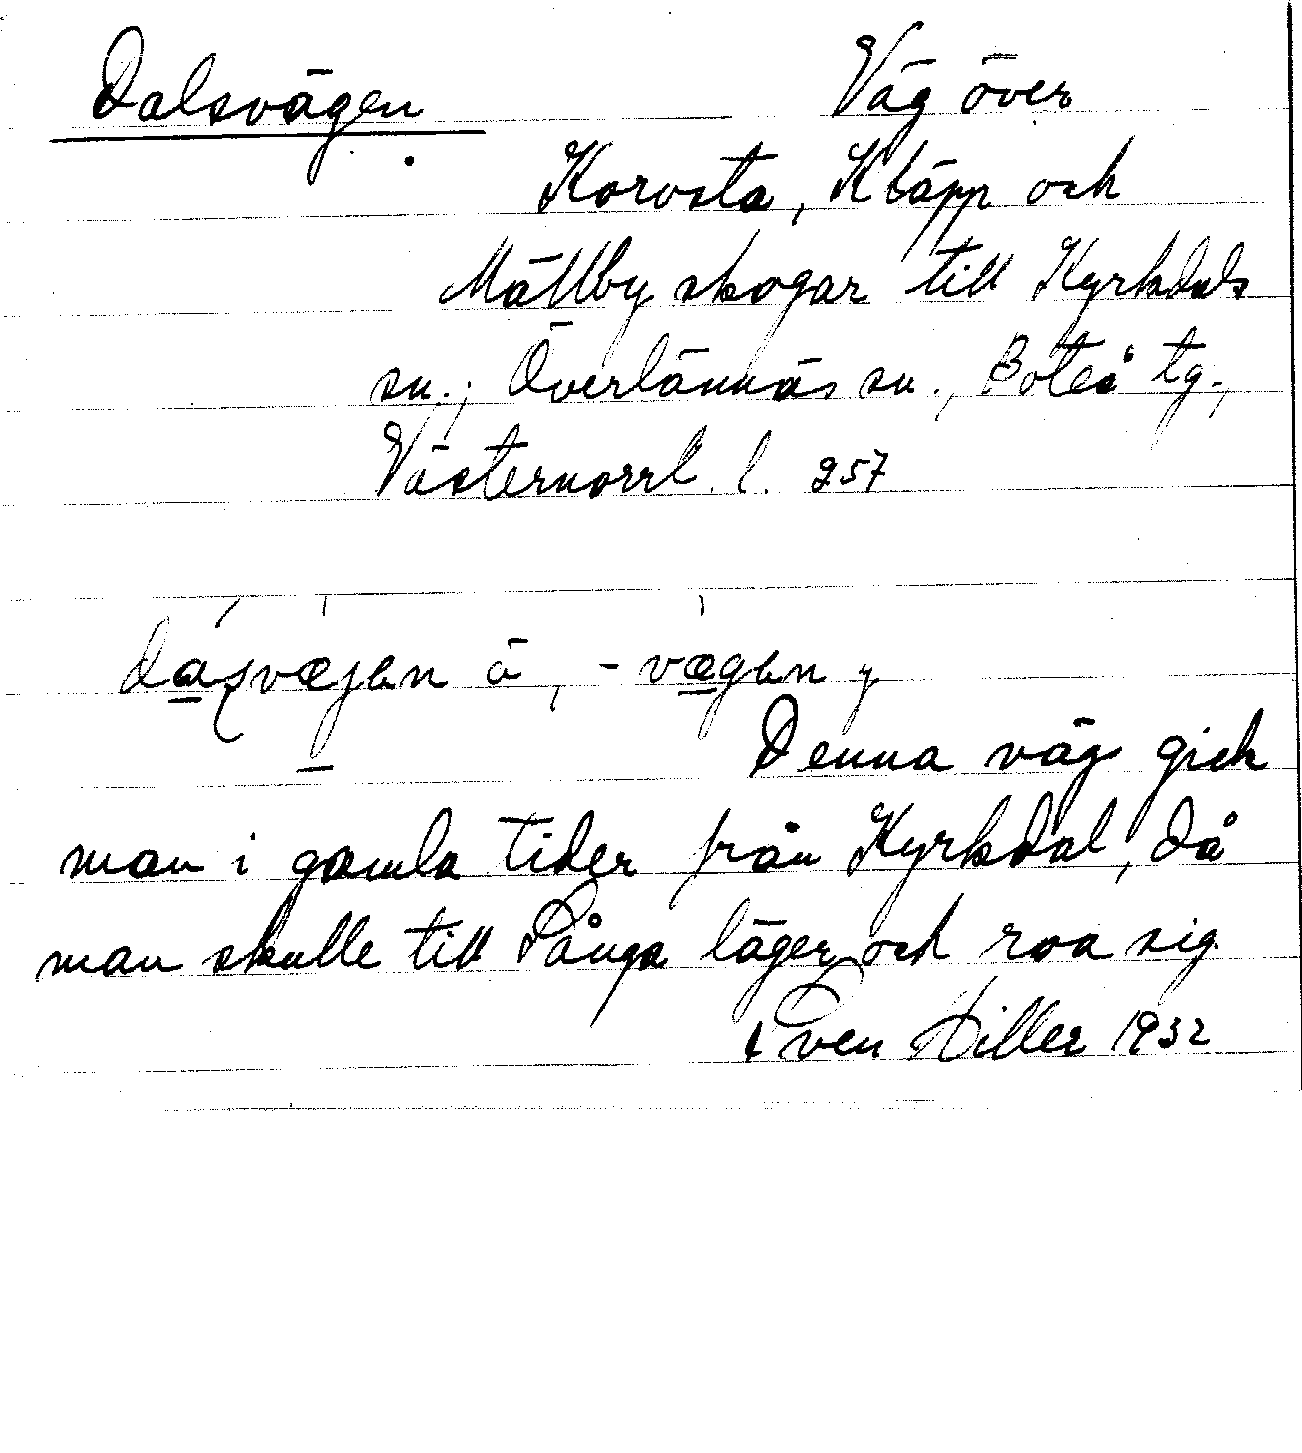 Dalsvägen Väg över
Korosta, Kläpp och
Mällby skogar till Kyrkdals
sn.; Överlännäs sn., Boteå tg.,
Västernorrl. l. 257
dasvæjen ä, -vægen y
Denna väg gick
man i gamla tider från Kyrkdal, då
man skulle till Sånga läger och roa sig
Sven Hiller 1932